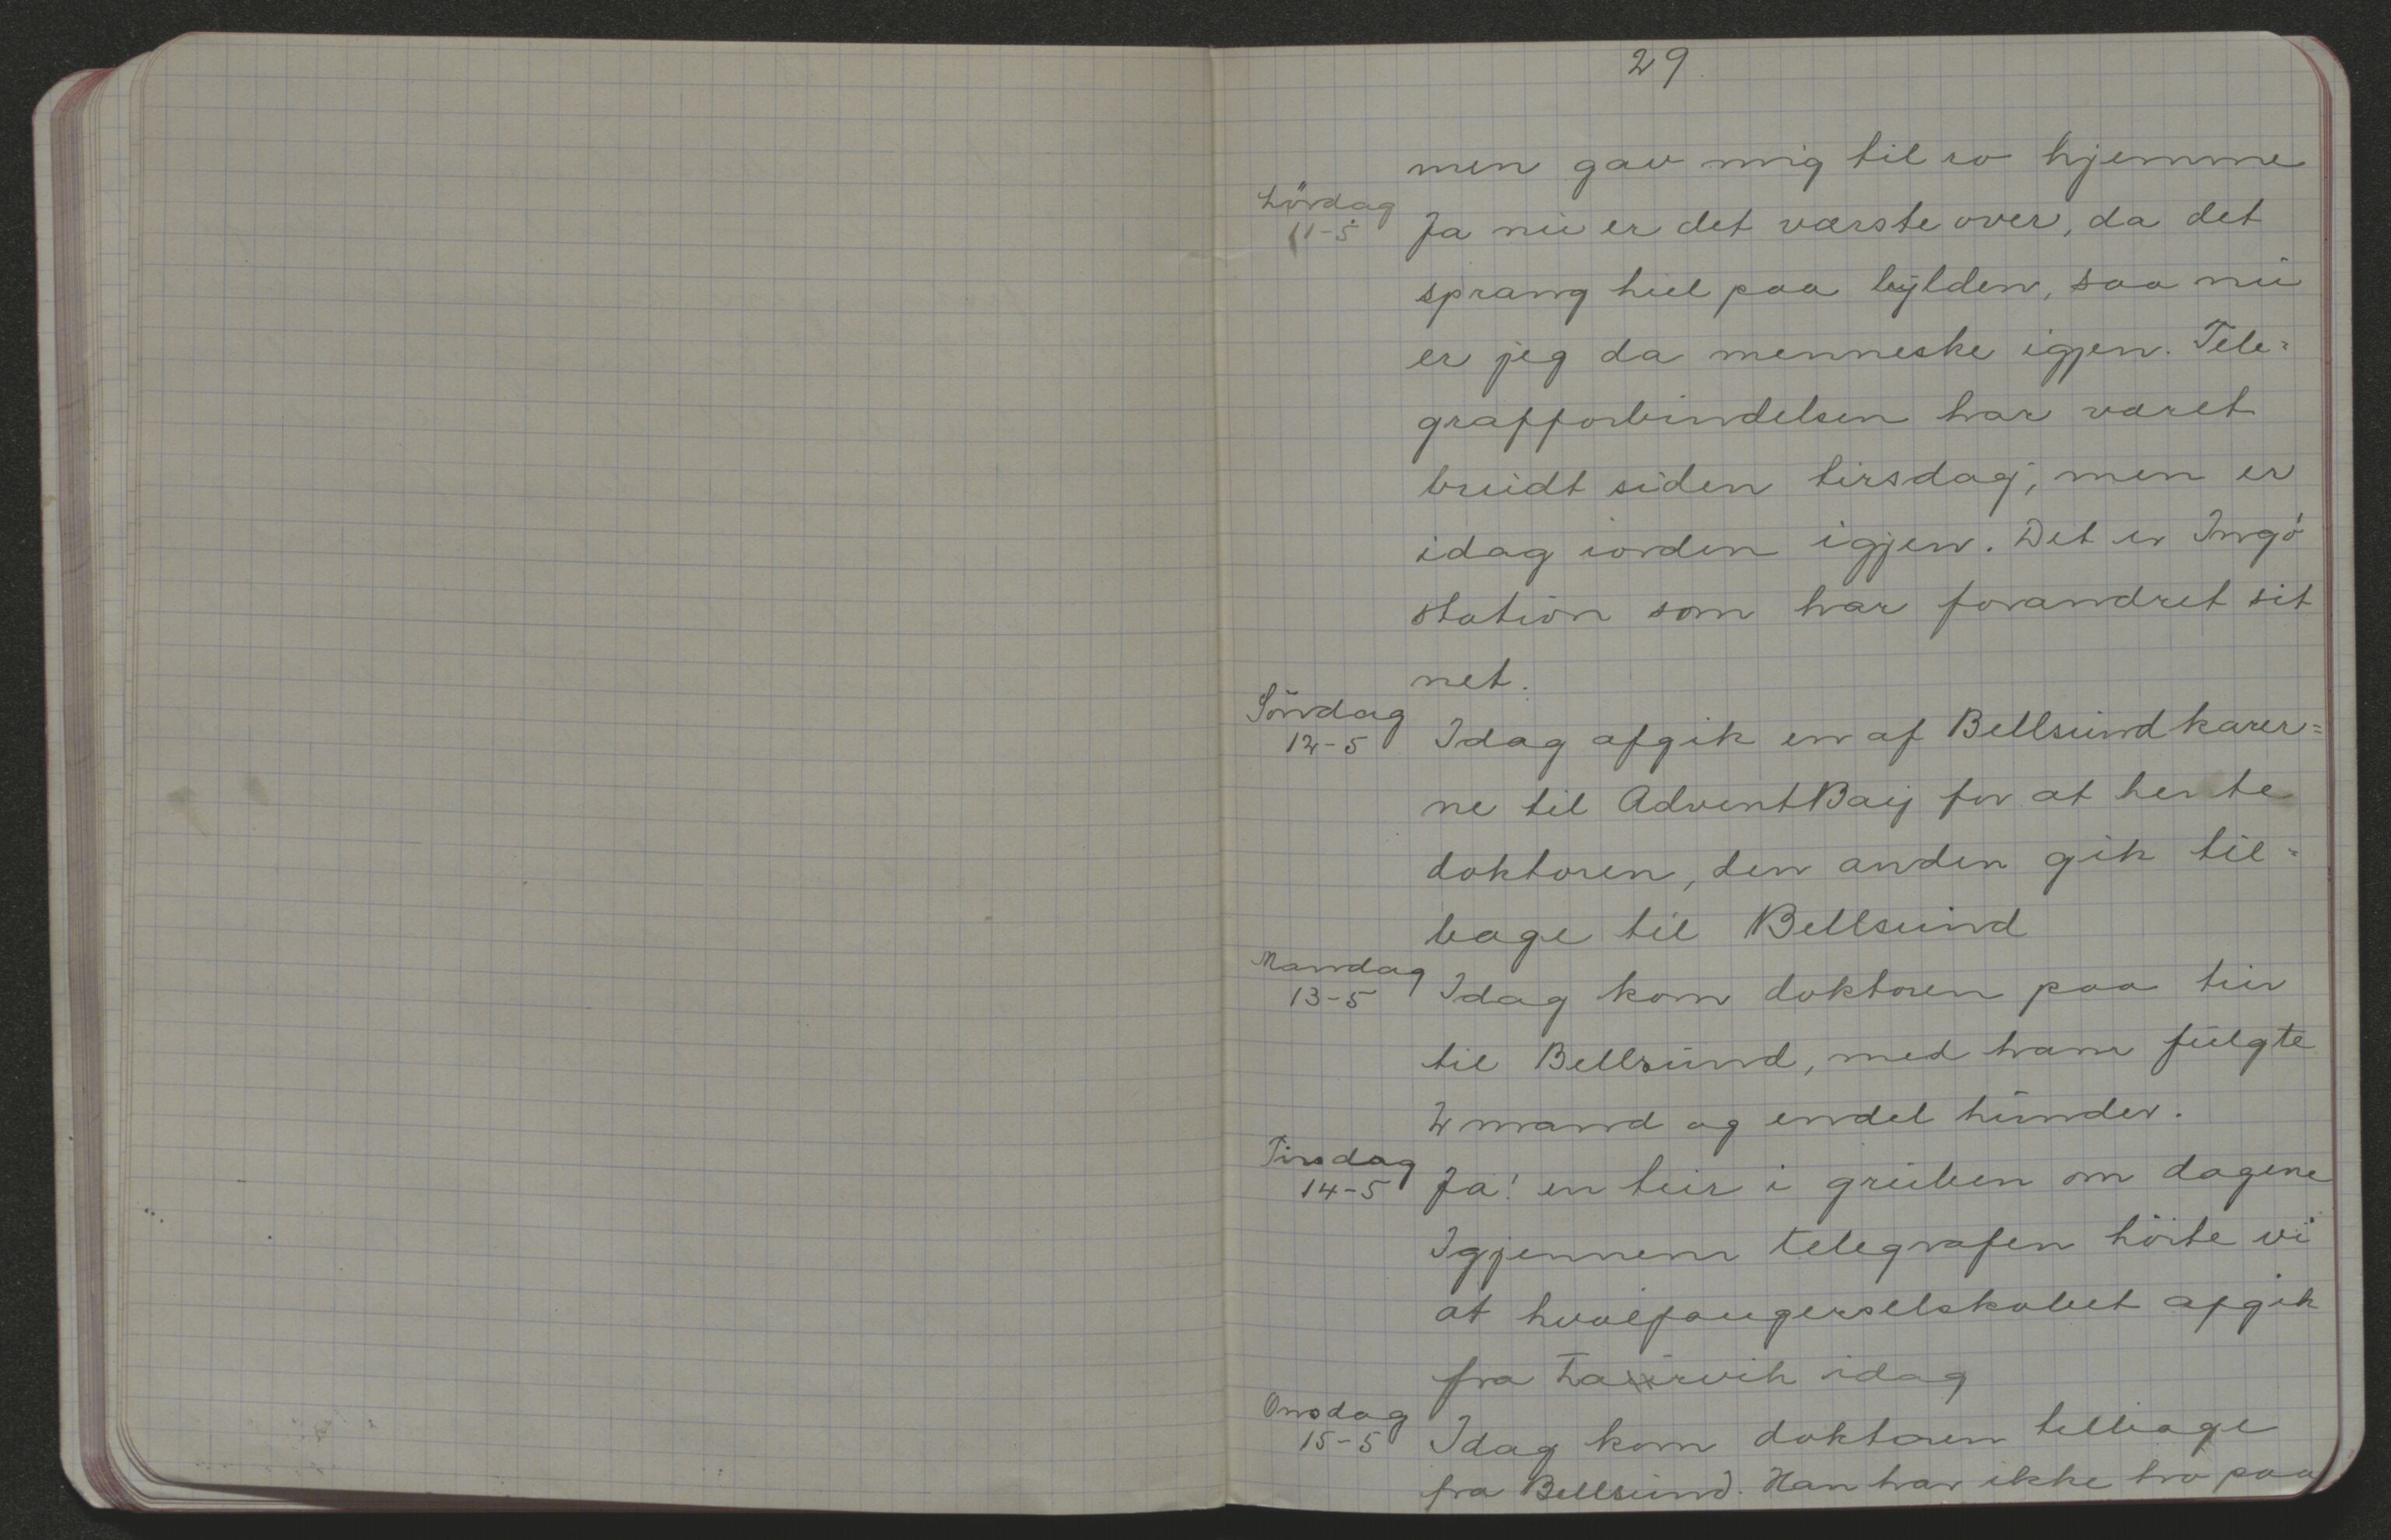 29
men gav mig til ro hjemme
Lördag
11-5
Ja nu er det værste over, da det
sprang hul paa bylden, saa nu
er jeg da menneske igjen. Tele=
grafforbindelsen har været
brudt siden tirsdag, men er
idag iorden igjen. Det er Ingö
station som har forandret sit
net.
Söndag
12-5
Idag afgik en af Bellsund karer=
ne til Advent Bay for at hente
doktoren, den anden gik til=
bage til Bellsund
Mandag
13-5
Idag kom doktoren paa tur
til Bellsund, med ham fulgte
2 mand og endel hunder.
Tirsdag
14-5
Ja! en tur i gruben om dagene
Igjennem telegrafen hörte vi
at hvalfangerselskabet afgik
fra Laurvik idag
Onsdag
15-5
Idag kom doktoren tilbage
fra Bellsund. Han har ikke tro paa